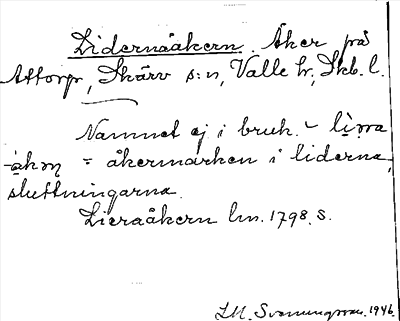 Lidernaåkern. Åker på
Attorpr, Skärv s:n, Valle hr, Skb. l.
Namnet ej i bruk. –
= åkermarken i liderna,
sluttningarna.
Lieraåkern lm. 1798. S.
1946.